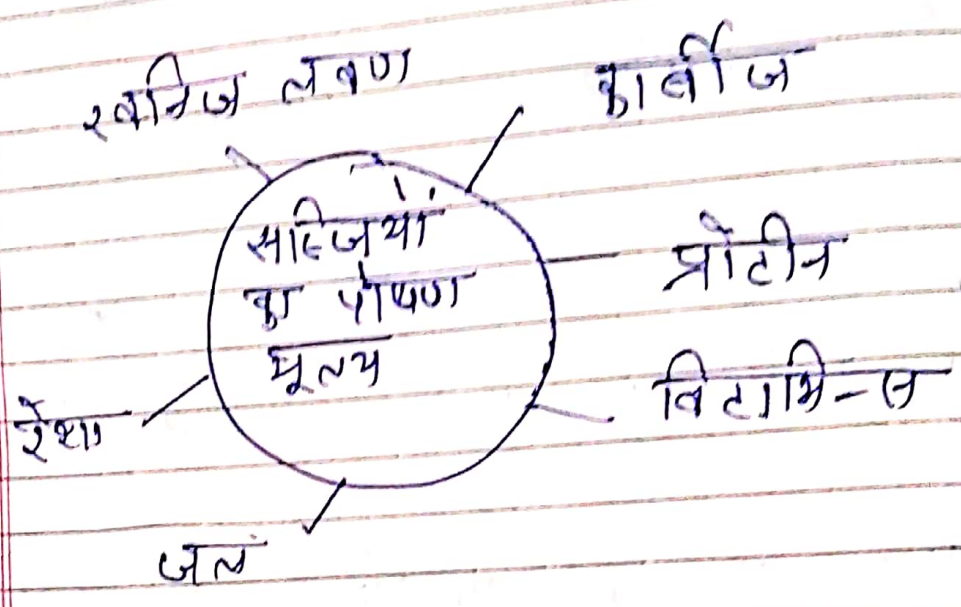 खनिज लवण
कार्बोज
सब्जियों
का पोषण
मूल्य
प्रोटीन
विटामिन्स
रेशा
जल